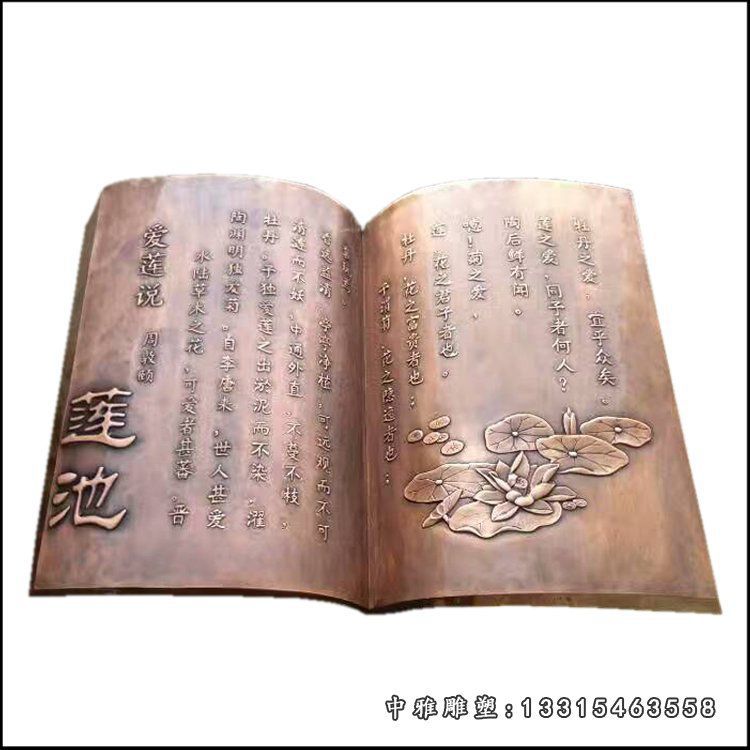 莲池
爱莲说
周敦颐
水陆草木之花，可爱者甚蕃。晋
陶渊明独爱菊。自李唐来，世人甚爱
牡丹。予独爱莲之出淤泥而不染，濯
清涟而不妖，中通外直，不蔓不枝，
香远益清，亭亭净植，可远观而不可
亵玩焉。
予谓菊，花之隐逸者也；
牡丹，花之富贵者也；
莲，花之君子者也。
噫！菊之爱，
陶后鲜有闻。
莲之爱，同予者何人？
牡丹之爱，宜乎众矣。
中雅雕塑：13315463558